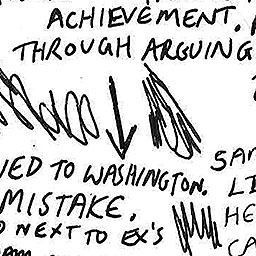 ACHIEVEMENT.
THROUGH ARGUING
TO WASHINGTON.
MISTAKE.
NEXT TO EX'S
HE